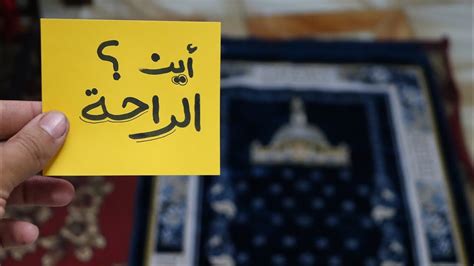 أين ؟
الراحة